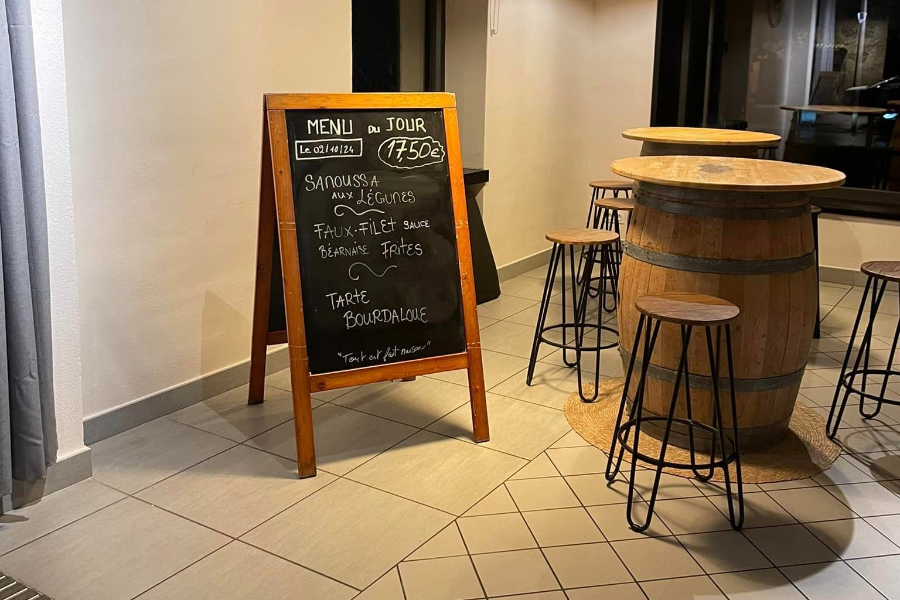 MENU DU JOUR
Le 02/10/24
17,50€
SANOUSSA
AUX LÉGUMES
FAUX-FILET SAUCE
BÉARNAISE FRITES
TARTE
BOURDALOUE
"Tout est fait maison"